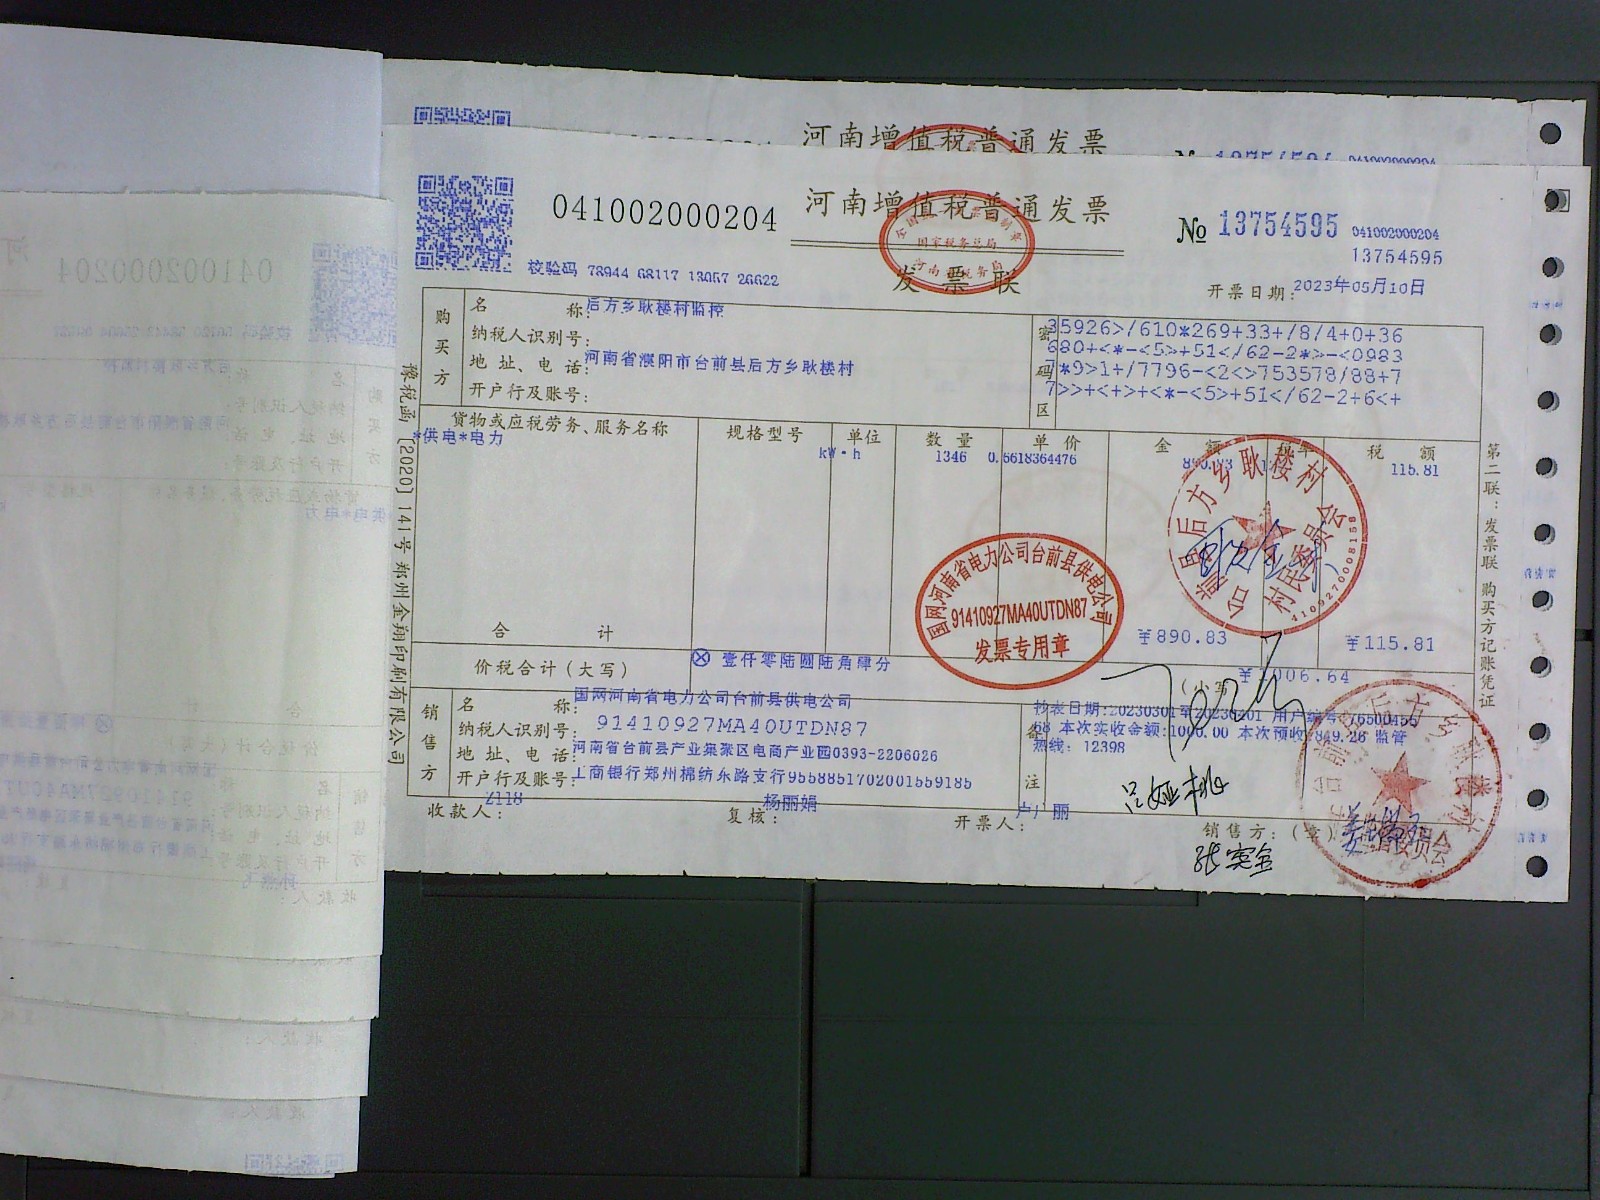 河南增值税普通发票
041002000204
河南增值税普通发票
№ 13754595
041002000204
13754595
国家税务总局
发票联
校验码 78944 68117 13057 26622
开票日期:2023年05月10日
购买方
名 称:后方乡耿楼村监控
纳税人识别号:
地址、电话:河南省濮阳市台前县后方乡耿楼村
开户行及账号:
密码区
35926>/610*269+33+/8/4+0+36
680+<*-<5>+51</62-2*>-<0983
/*9>1+/7796-<2<>753578/88+7
7>>+<+>+<*-<5>+51</62-2+6<+
货物或应税劳务、服务名称 规格型号 单位 数量 单价 金额 税率 税额
*供电*电力 kW·h 1346 0.6618364476 890.83 115.81
合计 ¥890.83 ¥115.81
价税合计(大写) ⊗ 壹仟零陆圆陆角肆分 (小写) ¥1006.64
销售方
名 称:国网河南省电力公司台前县供电公司
纳税人识别号:91410927MA40UTDN87
地址、电话:河南省台前县产业集聚区电商产业园0393-2206026
开户行及账号:工商银行郑州棉纺东路支行9558851702001559185
2118
备注
抄表日期:20230301至20230401 用户编号:76500455
68 本次实收金额:1000.00 本次预收:849.26 监管
热线: 12398
收款人:
复核: 杨丽娟
开票人: 卢丽
销售方:(章)
豫税函[2020]141号郑州金翔印刷有限公司
第二联:发票联 购买方记账凭证
国网河南省电力公司台前县供电公司
91410927MA40UTDN87
发票专用章
台前县后方乡耿楼村村民委员会
4109270008158
吕娅桃
张宪金